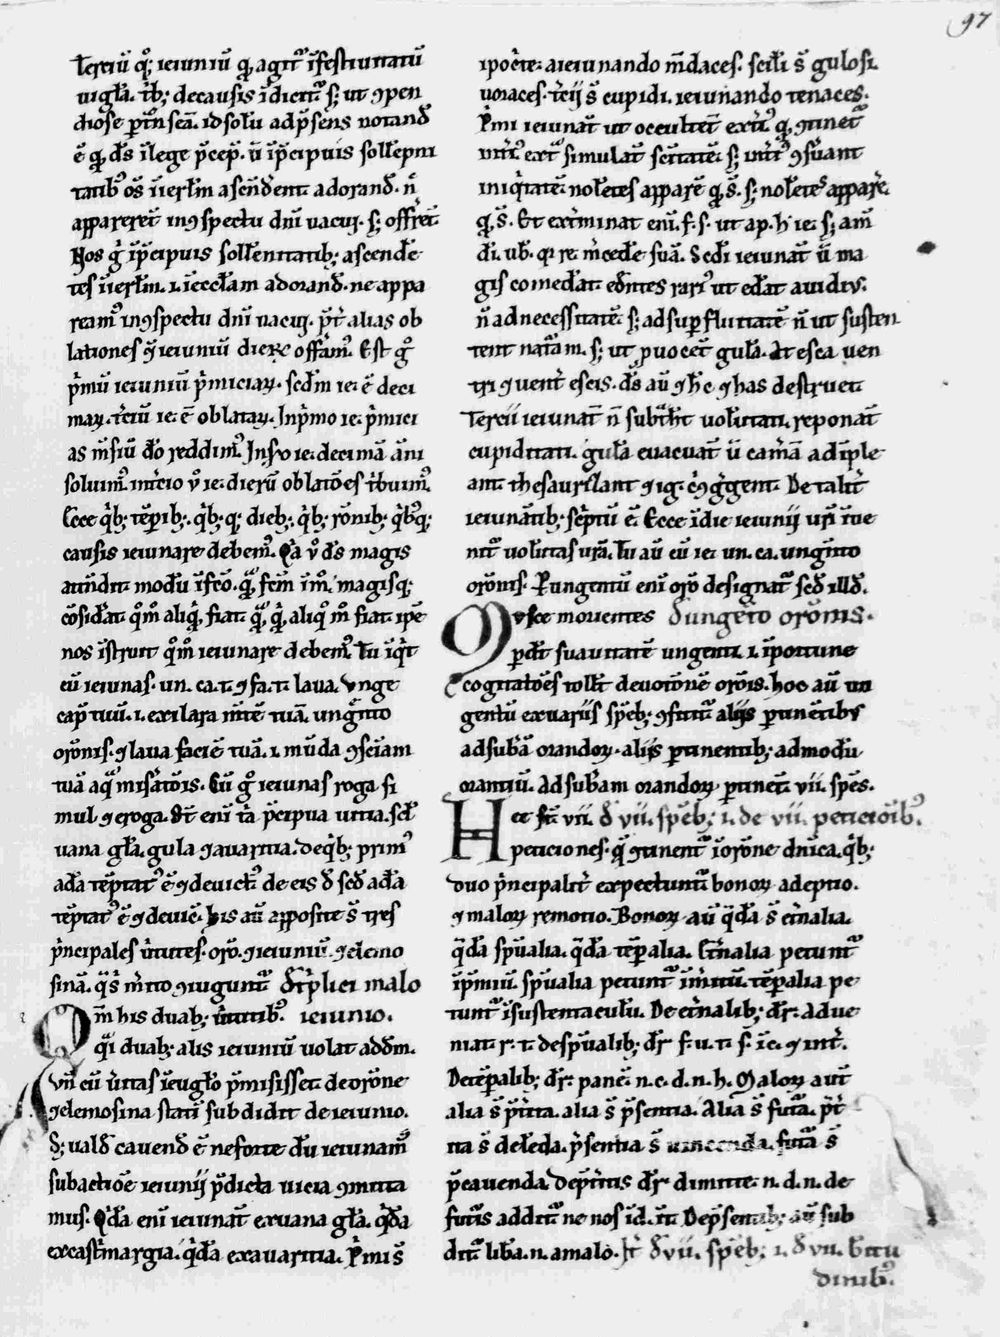 97
Terciū q̄; ieiuniū q̄ agit᷑ ī festiuitatū
uigł'a. t'b; de causis īdicit᷑ s; ut ꝯpen
diose ꝑtīn sc̄a. id solū ad p̄sens notand̄
ē q̄ d̄s ī lege p̄cep̄. ū ī p̄cipuis sollēpni
tatib᷒ oēs ī ierl̄m ascn̄dent adorand̄. n̄
apparerēt in ꝯspectu dn̄i uacui. s; offr̄ēt.
Nos ḡ ī p̄cipuis sollēnitatib; ascende
tes ī ierl̄m. i. ī eccl̄am adorand̄. ne appa
ream᷒ in ꝯspectu dn̄i uacui. p̄t alias ob
lationes q̄ ieiuniū dierꝫ offram᷒. Est ḡ
p̄mū ieiuniū p̄miciaꝝ. scd̄m ie. ē deci
maꝝ. t'ciū ie. ē oblataꝝ. In p̄mo ie. p̄mici
as m̄siū d̄o reddim᷒. In sc̄do ie. decimā ān̄i
soluim᷒. in t'cio ū ie. dierū oblatōes t'buim᷒.
Ecce q̄b; tēpib;. q̄b; q; dieb;. q̄b; rōnib; q̄b᷒q;
causis ieiunare debem᷒. Q̄a ū d̄s magis
attn̄dit modū
cōsid̄at q̄m̄ aliq̄. fiat
nos īstruit q̄m̄ ieiunare debem᷒. Tu īq̄t
cū ieiunas. un. ca. t. ꝯ fa. t. laua. Vnge
cap̄ tuū. i. exilara m̄tē tuā. ungn̄to
orōnis. ꝯ laua faciē tuā. i. mūda ꝯsciam
tuā aq̄ misatōis. Cū ḡ ieiunas roga si
mul ꝯ eroga. St̄ eni t'a p̄cipua uitia. sc̄l
uana gła. gula ꝯ auaritia. de q̄b; prim᷒
adā tēptat᷒ ē ꝯ deuict᷒ de eis ꝺ sc̄do adā
tēptat᷒ ē ꝯ deuic̄. his aū apposite s̄ tres
p̄ncipales ūtutes. orō. ꝯ ieiuniū. ꝯ elemo
sinā. q̄s m̄ito ꝯiugunt᷑ D̄ t'plici malo
Qm̄ his duab; ūtutib᷒. ieiunio.
q̄i duab; alis ieiuniū uolat ad d̄m.
Vn̄ cū ūitas ī eugło p̄misisset de orōne
ꝯ elemosina statī subdidit de ieiunio.
S; uald̄ cauend̄ ē ne forte dū ieiunam᷒
sub actiōe ieiunij p̄dicta uicia ꝯmitta
mus. Q̄da eni ieiunāt ex uana gła. q̄da
ex castimargia. q̄da ex auaritia. P̄mi s̄
ipoc̄te. a ieiunando m̄daces. sc̄di s̄ gulosi.
uoraces. t'cij s̄ cupidi. ieiunando tenaces.
P̄mi ieiunāt ut occultēt ext᷑i᷒ q̄ ꝯtinēt᷑
int᷑i᷒ ext᷑ simulāt sc̄itatē. s; int᷑i᷒ ꝯsūant
iniq̄tatē. nolētes apparē q̄ s̄. s; nolētes apparē.
q̄ s̄. Et ext̄minat eni. f. s. ut ap. h̄ ie. s; am̄
di. ub. q̄ re. m̄cedē suā. Scdi ieiunāt ū ma
gis comedāt. edn̄tes rari᷒ ut edāt auidi᷒.
n̄ ad necessitatē. s; ad sup̄fluitatē n̄ ut susten
tent natāam. s; ut p̄uocēt gulā. At esca uen
tri ꝯ uent̄ escis. d̄s aū ꝯ h̄c ꝯ has destruet.
Tercii ieiunāt n̄ subt̄hāt uolūtati. reponāt
cupiditati. gulā euacuāt ū cam̄ā adīple
ant. thesaurisant ꝯ ig. cui ꝯg̃gent. De talit᷑
ieiunātib; sc̄ptū ē. Ecce ī die ieiunij ur̄i īue
nit᷑ uolūtas ur̄a. Tu aū cū ie. un. ca. ungn̄to
orōnis. P̄ ungentū eni orō designat᷑ sc̄d illd̄.
Mvsce morientes D̄ ungēto orōnis.
ꝑdt̄ suauitatē ungenti. i. īportune
cogitatōes tollt̄ deuotōnē orōis. hoc aū un
gentū ex uariis sp̄eb; ꝯficitu᷑ aliis ꝑtinētib᷒
ad subā orandoꝝ. aliis ꝑtinentib; ad modū
orantiū. Ad subam orandoꝝ ꝑtinet vii. spēs.
Hec st̄ vii. D̄ vii. sp̄eb; i. de vii. peticiōib᷒.
peticiones. q̄ ꝯtinent᷑ ī orōne dn̄ica. q̄b;
duo p̄ncipalit᷑ expectunt᷑ bonoꝝ adeptio.
ꝯ maloꝝ remotio. Bonoꝝ aū q̄da s̄ et̄nalia.
q̄da sp̄ualia. q̄da tēꝑalia. Et̄nalia petunt᷑
ī p̄miū. sp̄ualia petunt᷑ ī m̄itū. tēꝑalia pe
tunt᷑ ī sustentaculū. De et̄nalib; dr̄. adue
niat. r. t. de sp̄ualib; dr̄ f. u. t. s. ī c. ꝯ in t̄.
De tēꝑalib; dr̄. panē. n. c. d. n. h. Maloꝝ aūt
alia s̄ p̄t'ita. alia s̄ p̄sentia. Alia s̄ futā. p̄t'i
ta s̄ delēda. p̄sentia s̄ uincenda. futā s̄
p̄cauenda. de p̄t'itis dr̄ dimitte. n. d. n. de
futīs addit᷑ ne nos īd. ī t. De p̄sentib; aū sub
dit᷑ liba. n. a malo. It̄ D̄ vii. sp̄eb; i. D̄ vii. b̄titu
dinib᷒.